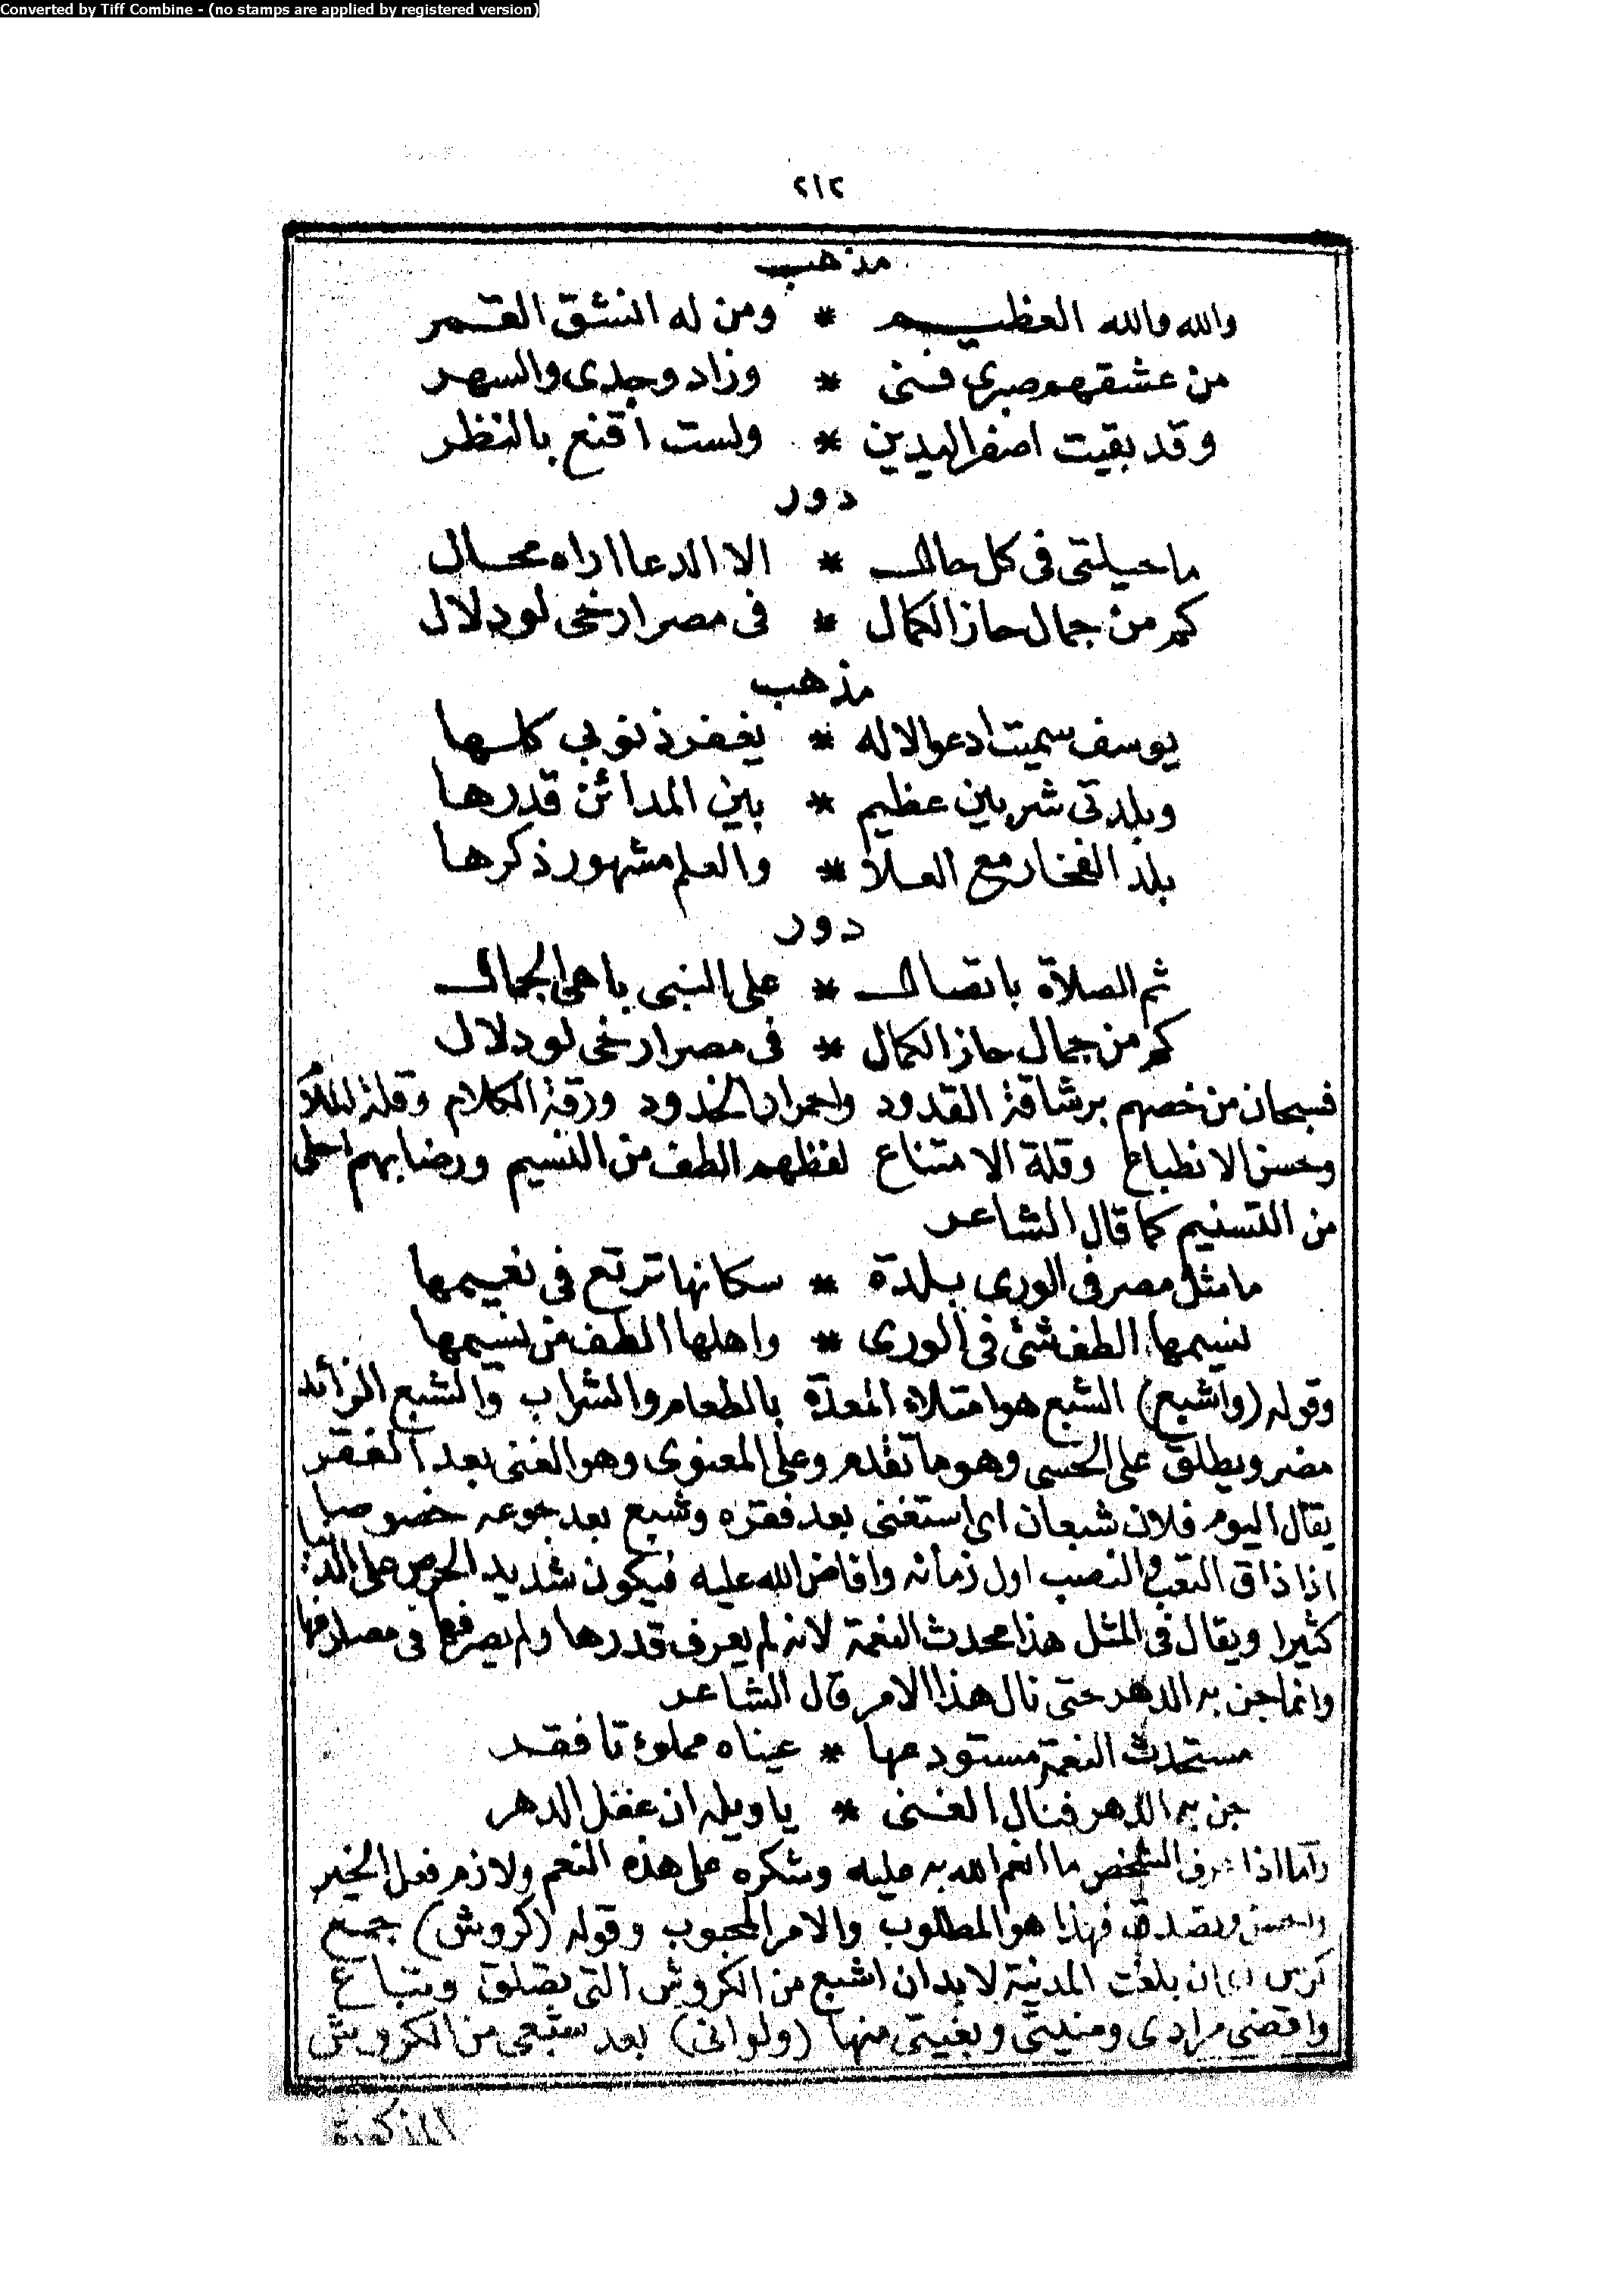 Converted by Tiff Combine - (no stamps are applied by registered version)
٢١٢
مذهب
والله والله العظيم * ومن له انشق القمر
من عشقهم صبرى فنى * وزاد وجدى والسهر
وقد بقيت اصفر اليدين * ولست اقنع بالنظر
دور
ما حيلتى فى كل حال * الا الدعا اراه محال
كم من جمال حاز الكمال * فى مصر ارخى لو دلال
مذهب
يوسف سميت ادعو الاله * يغفر ذنوبى كلها
وبلدتى شربين عظيم * بين المدائن قدرها
بلد الفخار مع العلا * والعلم مشهور ذكرها
دور
ثم الصلاة باتصال * على النبى باهى الجمال
كم من جمال حاز الكمال * فى مصر ارخى لو دلال
فسبحان من خصهم برشاقة القدود واحمرار الخدود ورقة الكلام وقلة
وحسن الانطباع وقلة الامتناع لفظهم الطف من النسيم ورضابهم احلى
من التسنيم كما قال الشاعر
ما مثل مصر فى الورى بلدة * سكانها ترتع فى نعيمها
نسيمها الطف شئ فى الورى * واهلها الطف من نسيمها
وقوله (واشبع) الشبع هو امتلاء المعدة بالطعام والشراب والشبع الزائد
مضر ويطلق على الحسى وهو ما تقدم وعلى المعنوى وهو الغنى بعد الفقر
يقال اليوم فلان شبعان اى استغنى بعد فقره وشبع بعد جوعه خصوصا
اذا ذاق التعب والنصب اول زمانه وافاض الله عليه فيكون شديد الحرص على الدنيا
كثيرا ويقال فى المثل هذا محدث النعمة لانه لم يعرف قدرها ولم يصرفها فى مصارفها
وانما جن به الدهر حتى نال هذا الامر قال الشاعر
مستحدث النعمة مستودعها * عيناه مملوءتا فقد
جن به الدهر فنال الغنى * يا ويله ان عقل الدهر
واما اذا عرف الشخص ما انعم الله به عليه وشكره على هذه النعم ولازم فعل الخير
ويصدق فهذا هو المطلوب والامر المحبوب وقوله (كروش) جمع
ان بلغت المدنية لا بد ان اشبع من الكروش التى تصلق وتباع
واقضى مرادى ومنيتى وبغيتى منها (ولوانى) بعد شبعى من الكروش
المذكورة